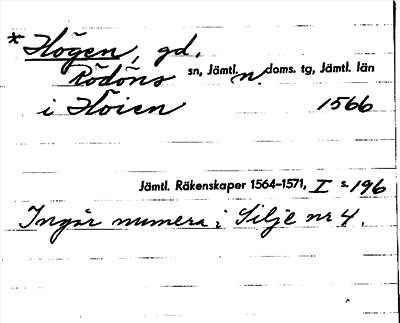 *Högen, gd.
Rödöns sn, Jämtl. n. doms. tg, Jämtl. län
i Höien 1566
Jämtl. Räkenskaper 1564–1571, I s. 196
Ingår numera i Silje nr 4.